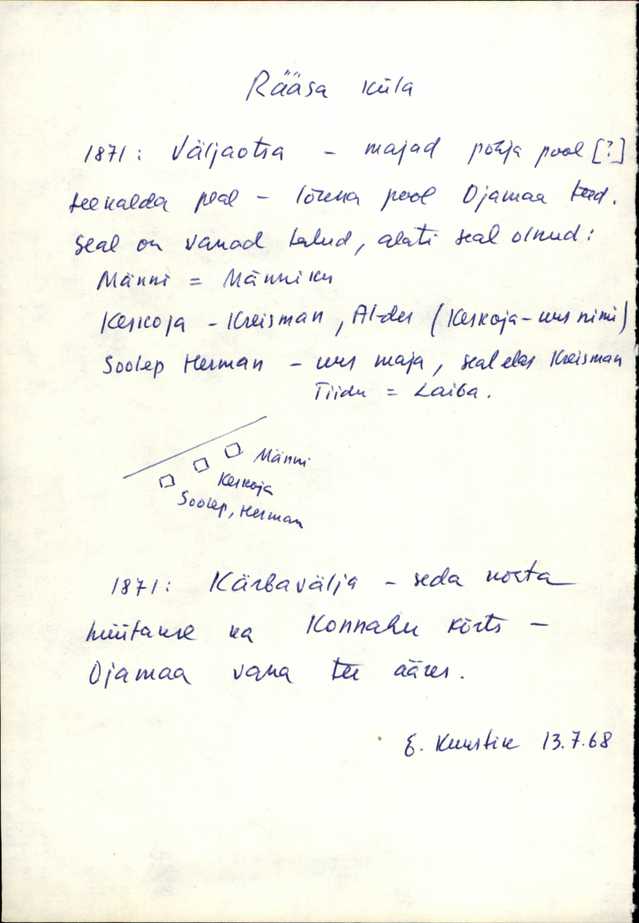 Rääsa küla
1871: Väljaotsa – majad põhja pool [?]
teekalda peal – lõuna pool Ojamaa teed.
Seal on vanad talud, alati seal olnud:
Männi = Männiku
Keskoja – Kreisman, Alder (Keskoja – uus nimi)
Soolep Herman – uus maja, seal elas Kreisman
Tiidu = Laiba.
Männi
Keskoja
Soolep, Herman
1871: Kärbavälja – seda kohta
hüütakse ka Konnahu kõrts –
Ojamaa vana tee ääres.
E. Kuustik 13.7.68